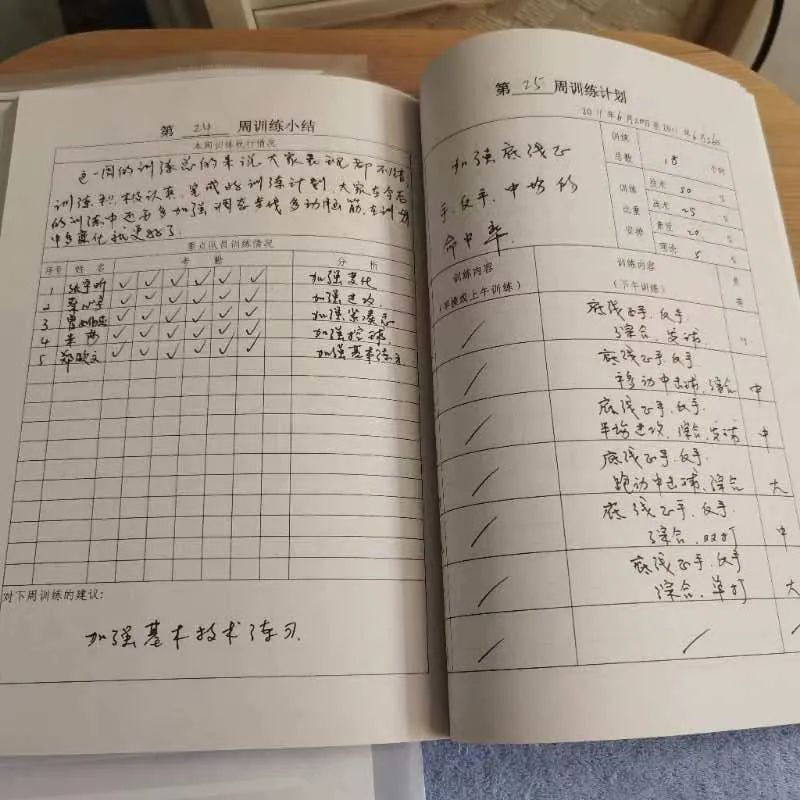 第 24 周训练小结
本周训练执行情况
这一周的训练总的来说大家表现都不错,
训练积极认真,完成好训练计划,大家在今后
的训练中还要多加强调在步伐多动脑筋,在训练
中多变化就更好了。
重点队员训练情况
序号 姓名 考勤 分析
1 ✓ ✓ ✓ ✓ ✓ ✓ 加强变化
2 ✓ ✓ ✓ ✓ ✓ ✓ 加强进攻.
3 ✓ ✓ ✓ ✓ ✓ ✓ 加强紧凑感
4 朱莎 ✓ ✓ ✓ ✓ ✓ ✓ 加强控球.
5 郑欧文 ✓ ✓ ✓ ✓ ✓ ✓ 加强基本练习
对下周训练的建议:
加强基本技术练习
第 25 周训练计划
2011年6月20日至2011年6月26日
加强底线正
手、反手、中场的
命中率.
训练总数 18 小时
训练比重安排
技术 50 %
战术 25 %
素质 20 %
理论 5 %
训练内容
(早操或上午训练)
训练内容
(下午训练)
底线正手、反手.
综合、发球.
底线正手、反手
移动中击球、综合 中
底线正手、反手.
半场进攻、综合、发球 中
底线正手、反手.
跑动中击球、综合 大
底线正手、反手.
综合、双打 中
底线正手、反手
综合、单打 大